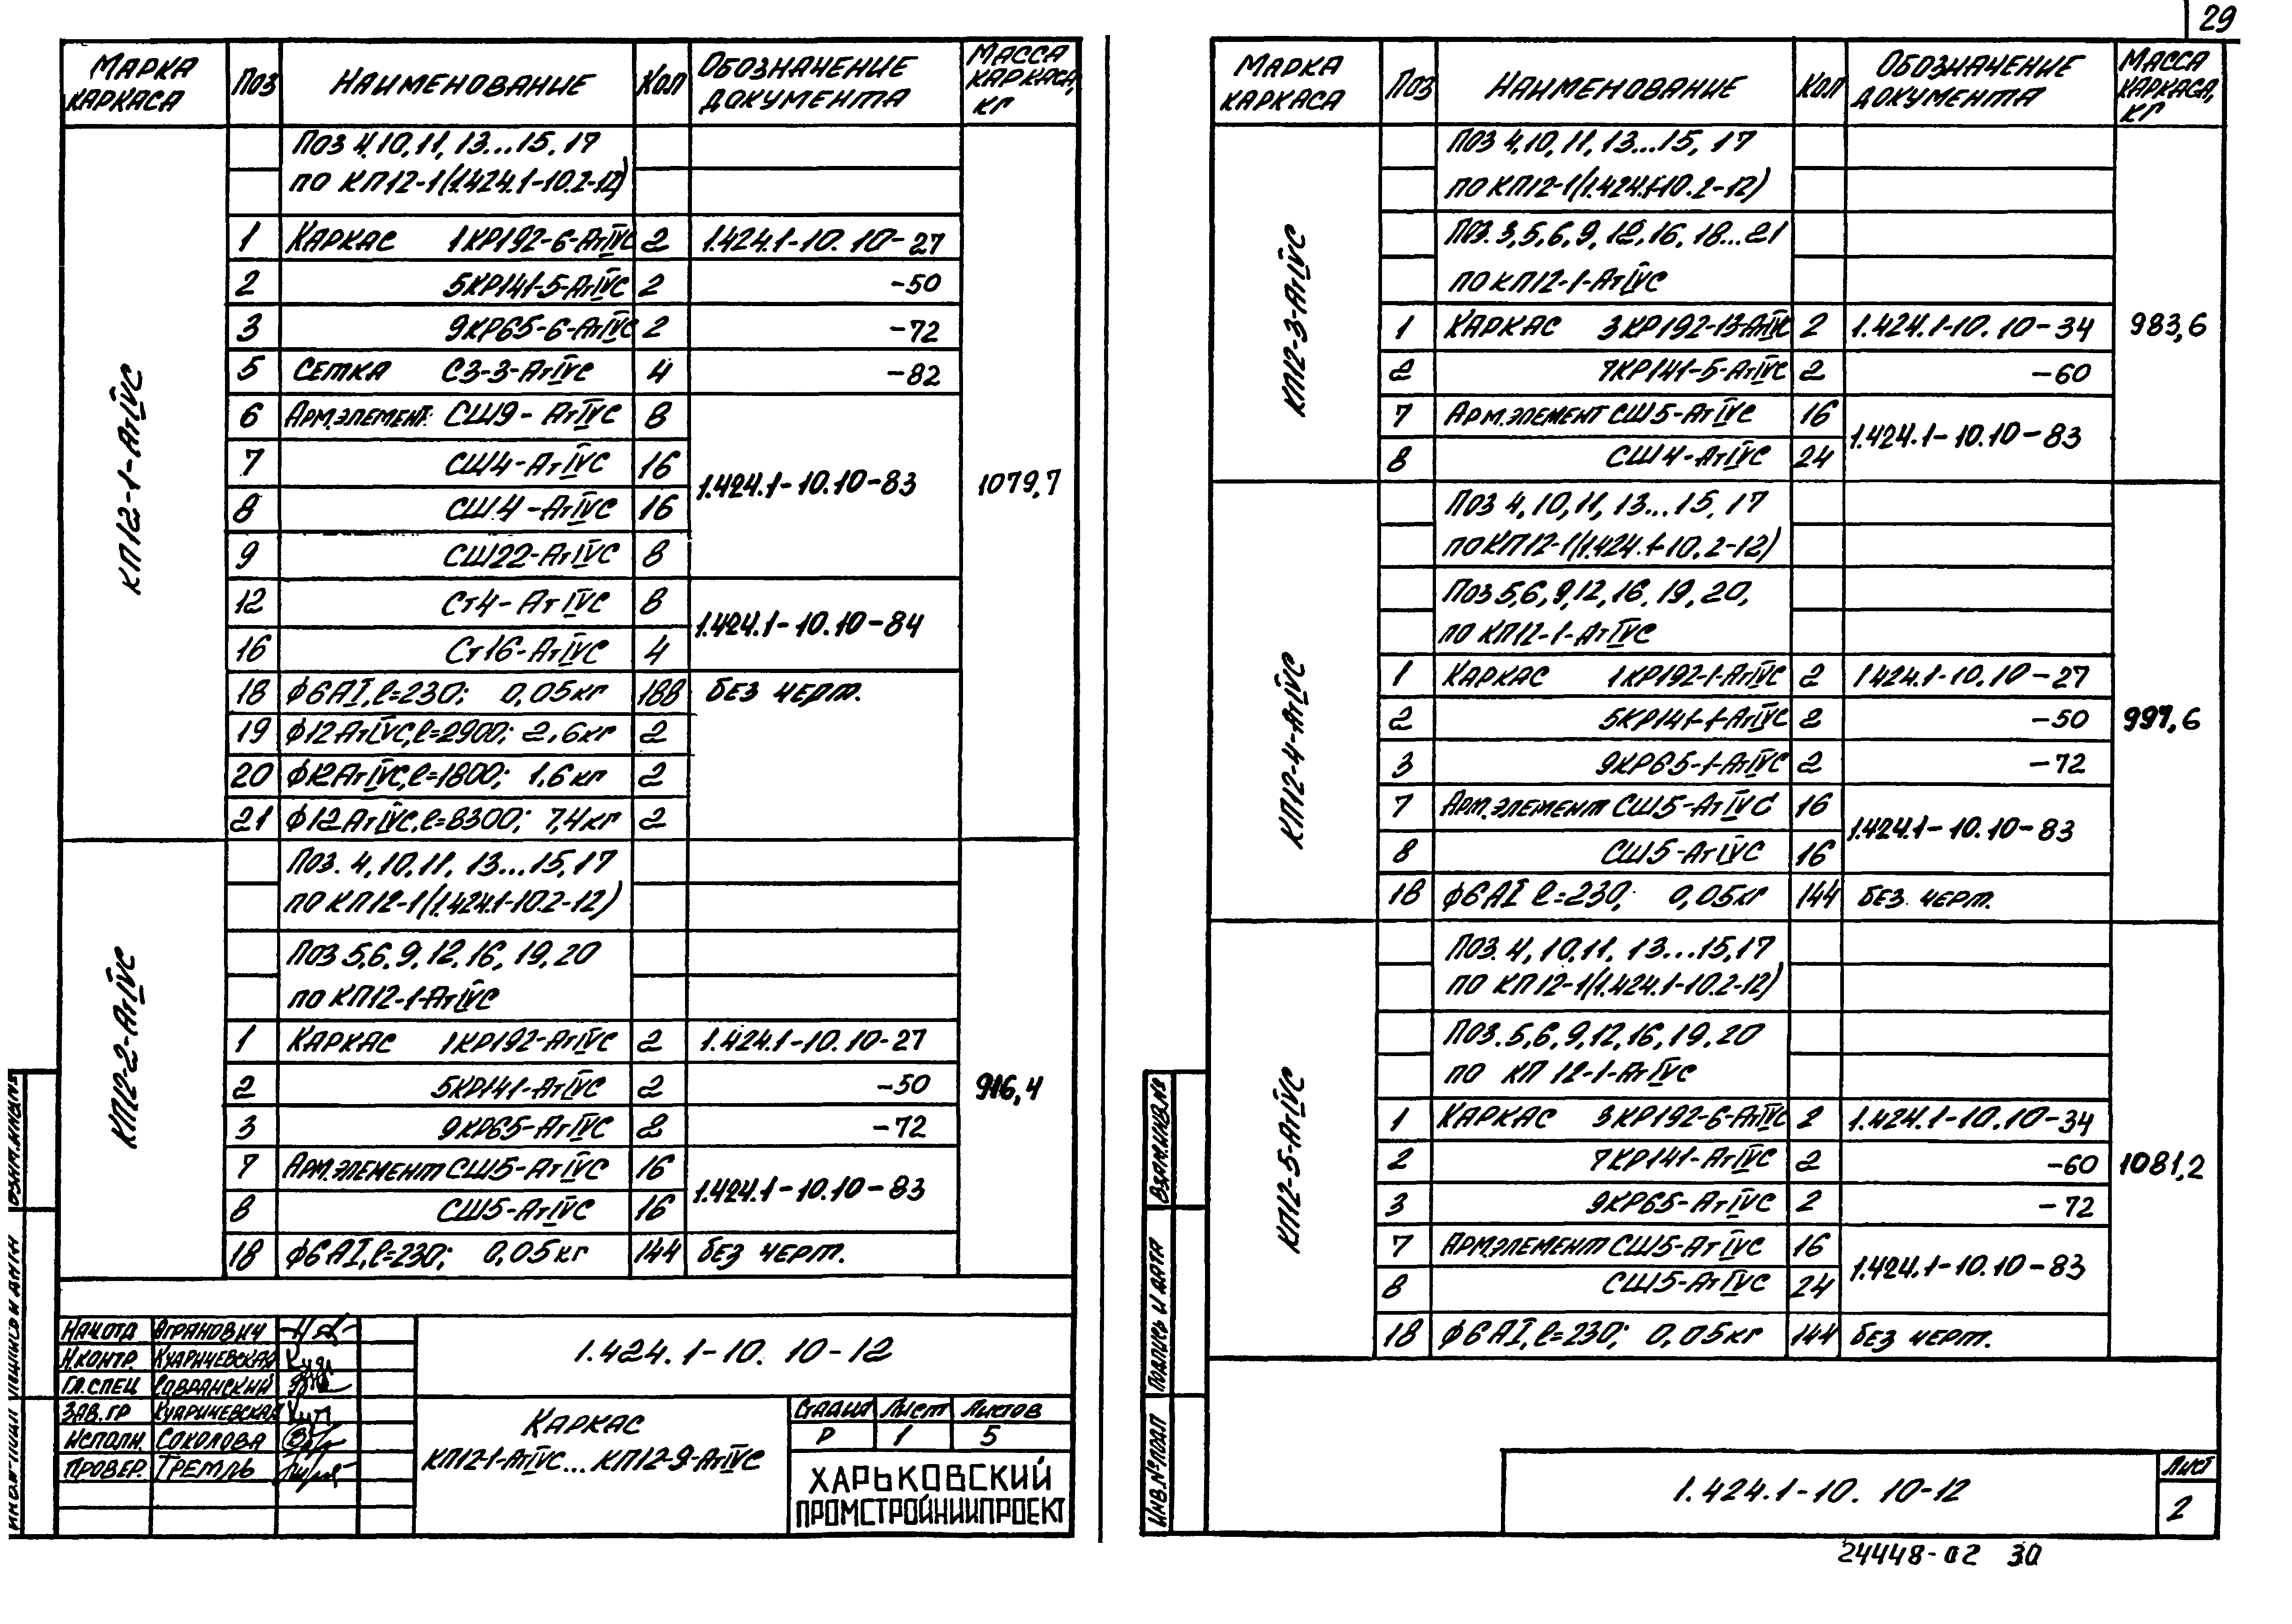 29
МАРКА КАРКАСА | ПОЗ | НАИМЕНОВАНИЕ | КОЛ | ОБОЗНАЧЕНИЕ ДОКУМЕНТА | МАССА КАРКАСА, КГ
КП12-1-АтIVС
ПОЗ 4,10,11,13...15,17
ПО КП12-1(1.424.1-10.2-12)
1 КАРКАС 1КР192-6-АтIVС 2 1.424.1-10.10-27
2 5КР141-5-АтIVС 2 -50
3 9КР65-6-АтIVС 2 -72
5 СЕТКА С3-3-АтIVС 4 -82
6 АРМ.ЭЛЕМЕНТ СШ9-АтIVС 8
7 СШ4-АтIVС 16
1.424.1-10.10-83 1079,7
8 СШ4-АтIVС 16
9 СШ22-АтIVС 8
12 Ст4-АтIVС 8
1.424.1-10.10-84
16 Ст16-АтIVС 4
18 ф6АI,ℓ=230; 0,05кг 188 БЕЗ ЧЕРТ.
19 ф12АтIVС,ℓ=2900; 2,6кг 2
20 ф12АтIVС,ℓ=1800; 1,6кг 2
21 ф12АтIVС,ℓ=8300; 7,4кг 2
КП12-2-АтIVС
ПОЗ. 4,10,11, 13...15,17
ПО КП12-1(1.424.1-10.2-12)
ПОЗ 5,6,9,12,16, 19,20
ПО КП12-1-АтIVС
1 КАРКАС 1КР192-АтIVС 2 1.424.1-10.10-27
2 5КР141-АтIVС 2 -50
916,4
3 9КР65-АтIVС 2 -72
7 АРМ.ЭЛЕМЕНТ СШ5-АтIVС 16
1.424.1-10.10-83
8 СШ5-АтIVС 16
18 ф6АI,ℓ=230; 0,05кг 144 БЕЗ ЧЕРТ.
НАЧ.ОТД АГРАНОВИЧ
Н.КОНТР. КУАРИЧЕВСКАЯ
ГЛ.СПЕЦ САВРАНСКИЙ
ЗАВ.ГР КУАРИЧЕВСКАЯ
ИСПОЛН. СОКОЛОВА
ПРОВЕР. ТРЕМЛЬ
1.424.1-10. 10-12
КАРКАС
КП12-1-АтIVС...КП12-9-АтIVС
СТАДИЯ ЛИСТ ЛИСТОВ
Р 1 5
ХАРЬКОВСКИЙ
ПРОМСТРОЙНИИПРОЕКТ
МАРКА КАРКАСА | ПОЗ | НАИМЕНОВАНИЕ | КОЛ | ОБОЗНАЧЕНИЕ ДОКУМЕНТА | МАССА КАРКАСА, КГ
КП12-3-АтIVС
ПОЗ 4,10,11, 13...15, 17
ПО КП12-1(1.424.1-10.2-12)
ПОЗ. 3,5,6,9, 12,16, 18...21
ПО КП12-1-АтIVС
1 КАРКАС 3КР192-13-АтIVС 2 1.424.1-10.10-34 983,6
2 7КР141-5-АтIVС 2 -60
7 АРМ.ЭЛЕМЕНТ СШ5-АтIVС 16
1.424.1-10.10-83
8 СШ4-АтIVС 24
КП12-4-АтIVС
ПОЗ 4,10,11, 13...15, 17
ПО КП12-1(1.424.1-10.2-12)
ПОЗ 5,6,9,12,16, 19,20,
ПО КП12-1-АтIVС
1 КАРКАС 1КР192-1-АтIVС 2 1.424.1-10.10-27
2 5КР141-1-АтIVС 2 -50 997,6
3 9КР65-1-АтIVС 2 -72
7 АРМ.ЭЛЕМЕНТ СШ5-АтIVС 16
1.424.1-10.10-83
8 СШ5-АтIVС 16
18 ф6АI ℓ=230; 0,05кг 144 БЕЗ ЧЕРТ.
КП12-5-АтIVС
ПОЗ. 4,10,11, 13...15,17
ПО КП12-1(1.424.1-10.2-12)
ПОЗ. 5,6,9,12,16,19,20
ПО КП 12-1-АтIVС
1 КАРКАС 3КР192-6-АтIVС 2 1.424.1-10.10-34
2 7КР141-АтIVС 2 -60 1081,2
3 9КР65-АтIVС 2 -72
7 АРМ.ЭЛЕМЕНТ СШ5-АтIVС 16
1.424.1-10.10-83
8 СШ5-АтIVС 24
18 ф6АI,ℓ=230; 0,05кг 144 БЕЗ ЧЕРТ.
ВЗАМ.ИНВ.№
ПОДПИСЬ И ДАТА
ИНВ.№ ПОДЛ
1.424.1-10. 10-12
ЛИСТ
2
24448-02 30